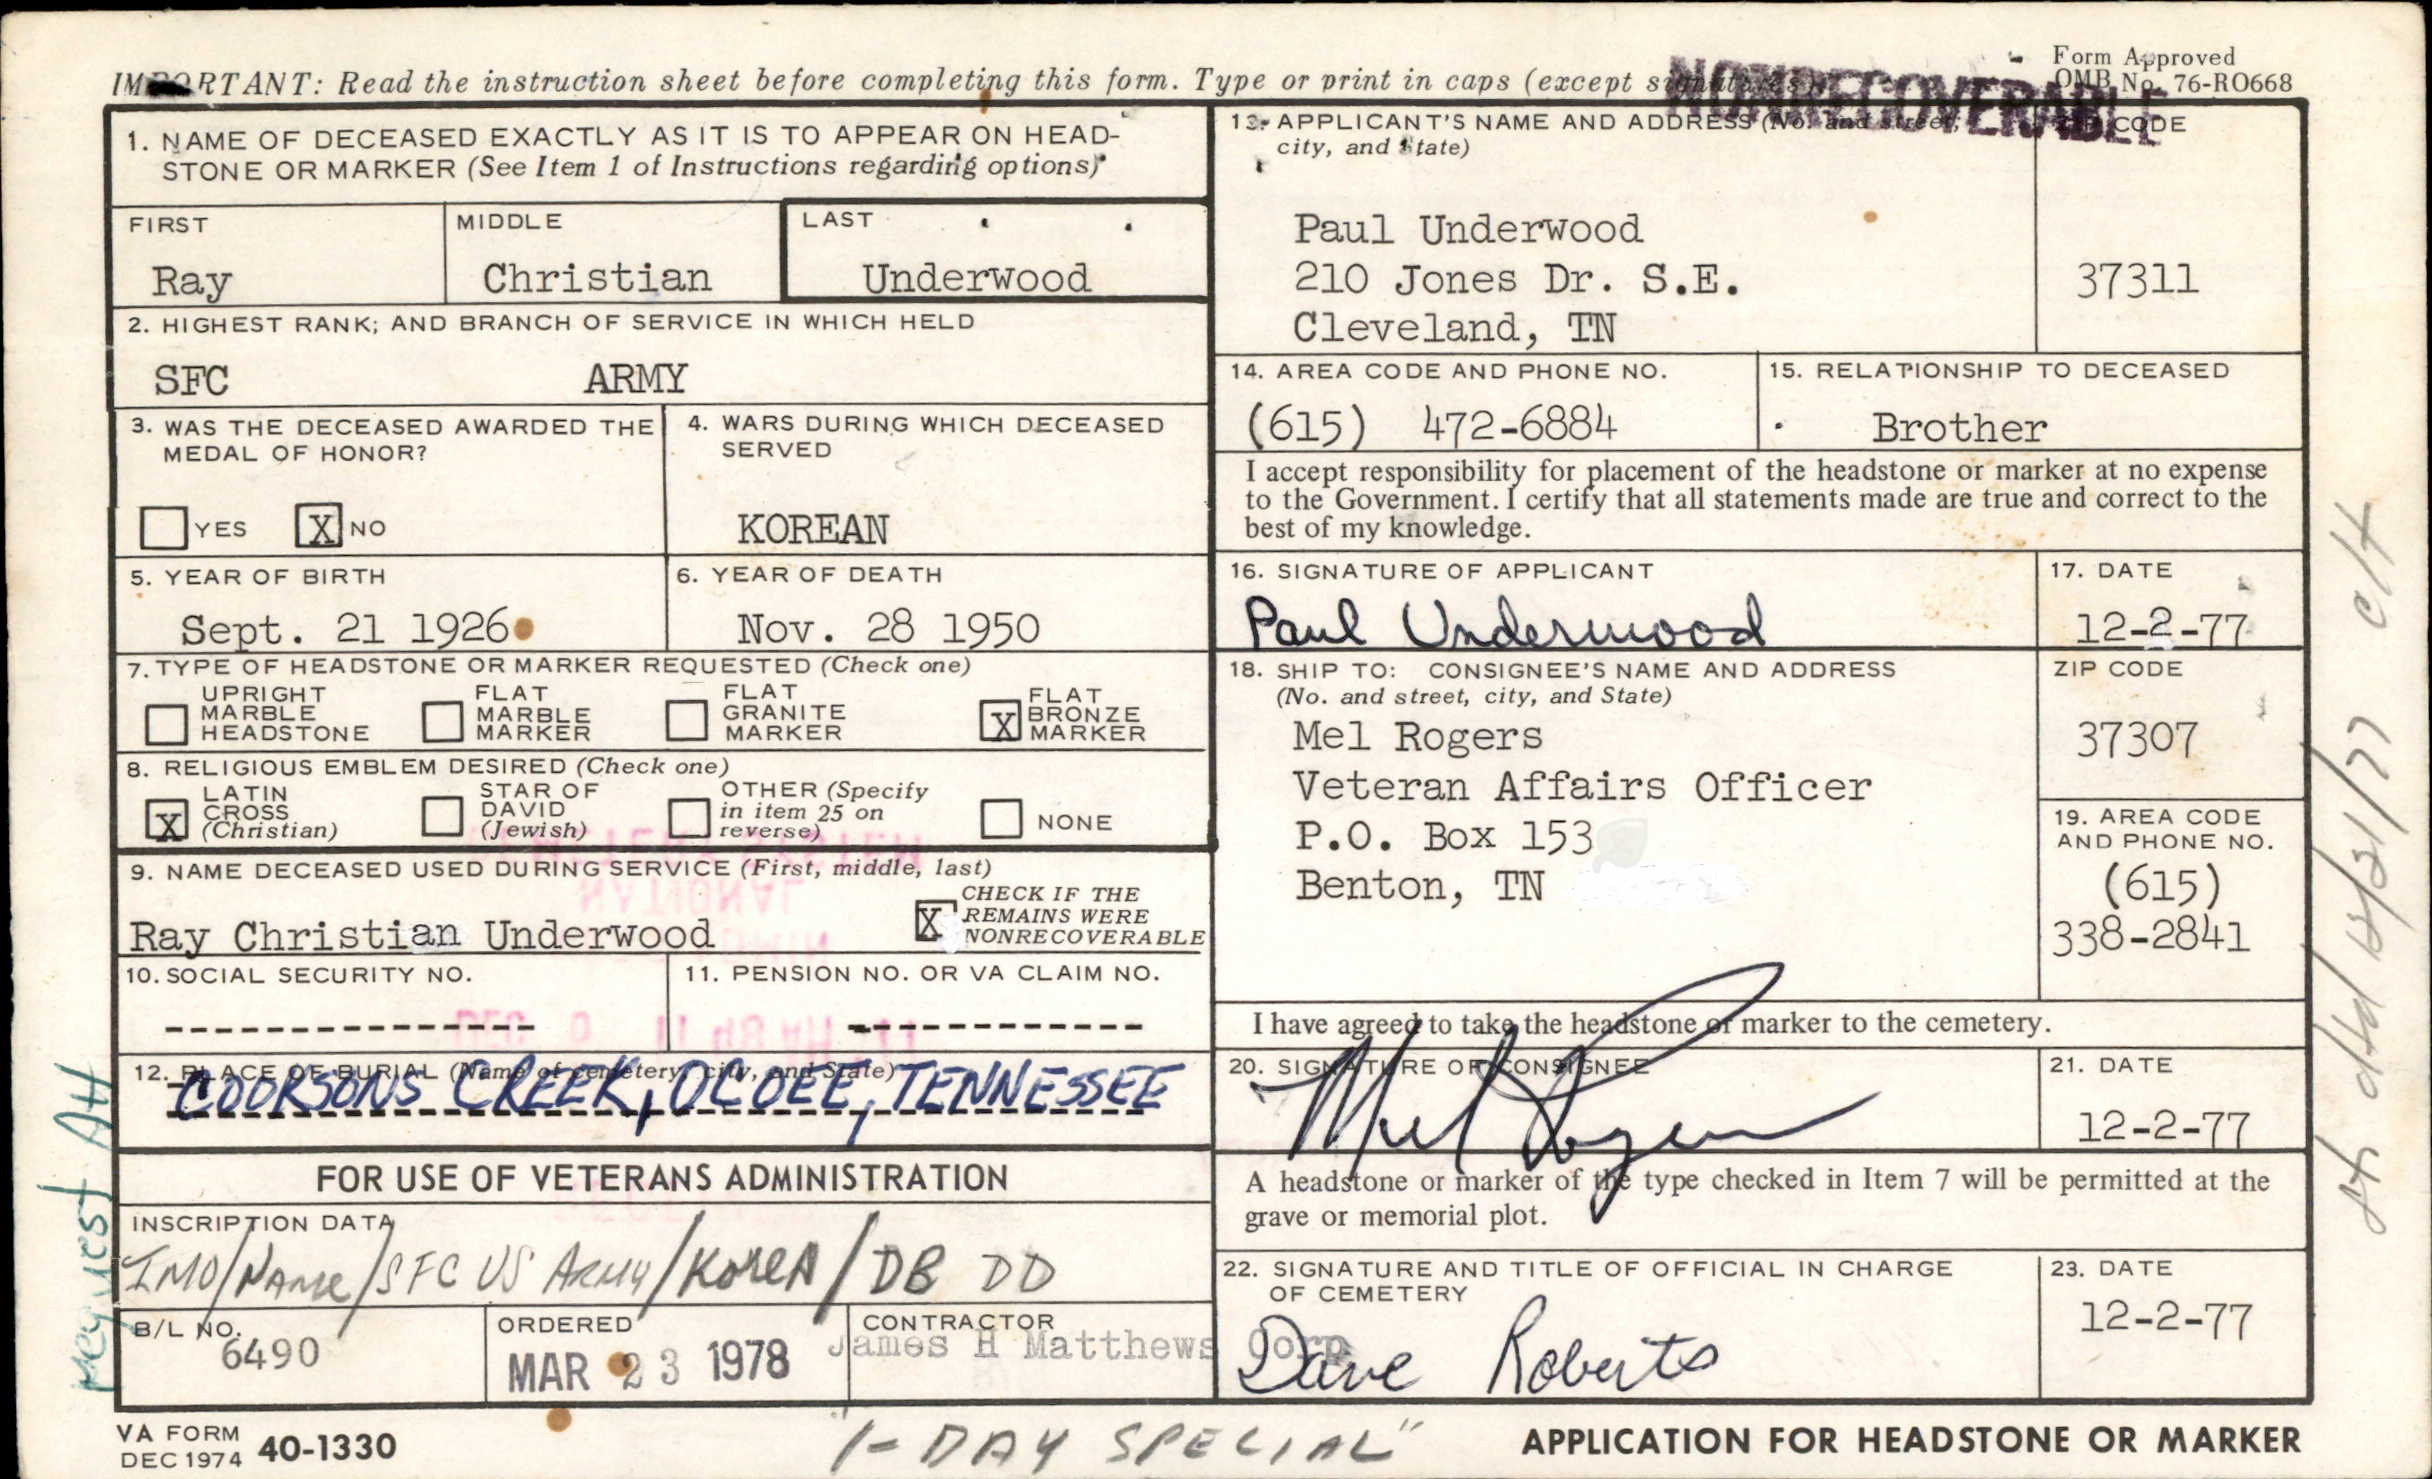 Form Approved
OMB No. 76-RO668
IMPORTANT: Read the instruction sheet before completing this form. Type or print in caps (except signatures)
NONRECOVERABLE
1. NAME OF DECEASED EXACTLY AS IT IS TO APPEAR ON HEAD-
STONE OR MARKER (See Item 1 of Instructions regarding options)
FIRST MIDDLE LAST
Ray Christian Underwood
2. HIGHEST RANK; AND BRANCH OF SERVICE IN WHICH HELD
SFC ARMY
3. WAS THE DECEASED AWARDED THE
MEDAL OF HONOR?
YES X NO
4. WARS DURING WHICH DECEASED
SERVED
KOREAN
5. YEAR OF BIRTH
Sept. 21 1926
6. YEAR OF DEATH
Nov. 28 1950
7. TYPE OF HEADSTONE OR MARKER REQUESTED (Check one)
UPRIGHT
MARBLE
HEADSTONE
FLAT
MARBLE
MARKER
FLAT
GRANITE
MARKER
X FLAT
BRONZE
MARKER
8. RELIGIOUS EMBLEM DESIRED (Check one)
X LATIN
CROSS
(Christian)
STAR OF
DAVID
(Jewish)
OTHER (Specify
in item 25 on
reverse)
NONE
9. NAME DECEASED USED DURING SERVICE (First, middle, last)
Ray Christian Underwood
X CHECK IF THE
REMAINS WERE
NONRECOVERABLE
10. SOCIAL SECURITY NO.
11. PENSION NO. OR VA CLAIM NO.
12. PLACE OF BURIAL (Name of cemetery, city, and State)
COORSONS CREEK, OCOEE, TENNESSEE
FOR USE OF VETERANS ADMINISTRATION
INSCRIPTION DATA
IMO/NAME/SFC US ARMY/KOREA/DB DD
B/L NO.
6490
ORDERED
MAR 23 1978
CONTRACTOR
James H Matthews Corp
13. APPLICANT'S NAME AND ADDRESS (No. and street,
city, and State)
ZIP CODE
Paul Underwood
210 Jones Dr. S.E.
Cleveland, TN
37311
14. AREA CODE AND PHONE NO.
(615) 472-6884
15. RELATIONSHIP TO DECEASED
Brother
I accept responsibility for placement of the headstone or marker at no expense
to the Government. I certify that all statements made are true and correct to the
best of my knowledge.
16. SIGNATURE OF APPLICANT
Paul Underwood
17. DATE
12-2-77
18. SHIP TO: CONSIGNEE'S NAME AND ADDRESS
(No. and street, city, and State)
Mel Rogers
Veteran Affairs Officer
P.O. Box 153
Benton, TN
ZIP CODE
37307
19. AREA CODE
AND PHONE NO.
(615)
338-2841
I have agreed to take the headstone or marker to the cemetery.
20. SIGNATURE OF CONSIGNEE
Mel Rogers
21. DATE
12-2-77
A headstone or marker of the type checked in Item 7 will be permitted at the
grave or memorial plot.
22. SIGNATURE AND TITLE OF OFFICIAL IN CHARGE
OF CEMETERY
Dave Roberts
23. DATE
12-2-77
VA FORM
DEC 1974 40-1330
"1-DAY SPECIAL"
APPLICATION FOR HEADSTONE OR MARKER
request AH
dtd 12/21/77 clt